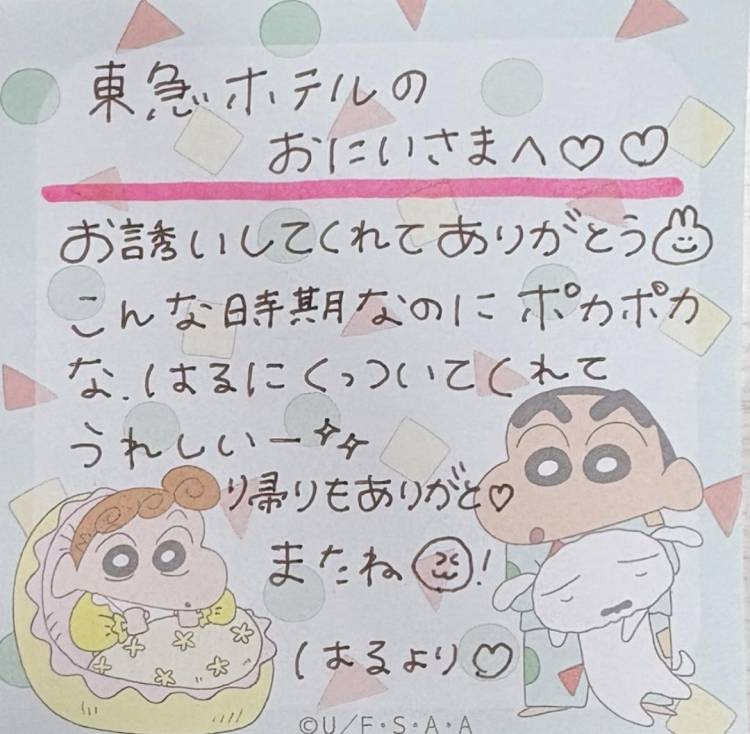 東急ホテルの
おにいさまへ♡♡
お誘いしてくれてありがとう
こんな時期なのにポカポカ
な、はるにくっついてくれて
うれしいー
り帰りもありがと♡
またね!
はるより♡
©U/F・S・A・A